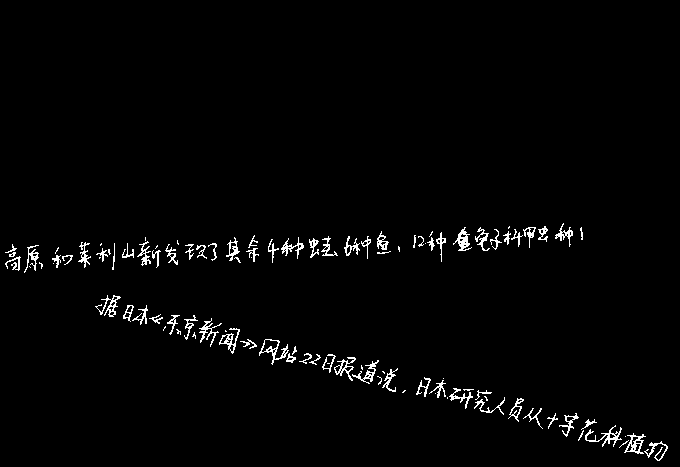 高原和莱利山新发现了其余4种蛙、6种鱼、12种龟子科甲虫种1
据日本《东京新闻》网站22日报道说，日本研究人员从十字花科植物